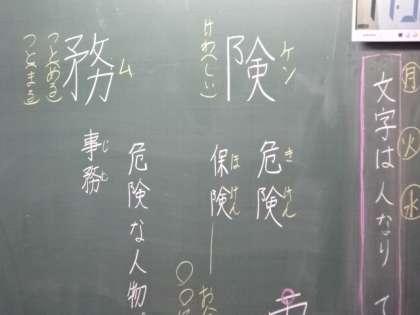 月 火 水
文字は人なり
険
ケン
(けわしい)
危険
きけん
保険
ほけん
危険な人物
務
ム
(つとめる)
(つとまる)
事務
じむ